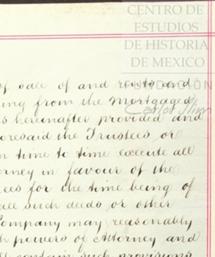 CENTRO DE
ESTUDIOS
DE HISTORIA
DE MEXICO
of sale of and rents and
ing from the Mortgaged
s hereinafter provided and
oresaid the Trustees or
m time to time execute all
orney in favour of the
ees for the time being of
all such deeds or other
Company may reasonably
h powers of Attorney and
contain such provisions